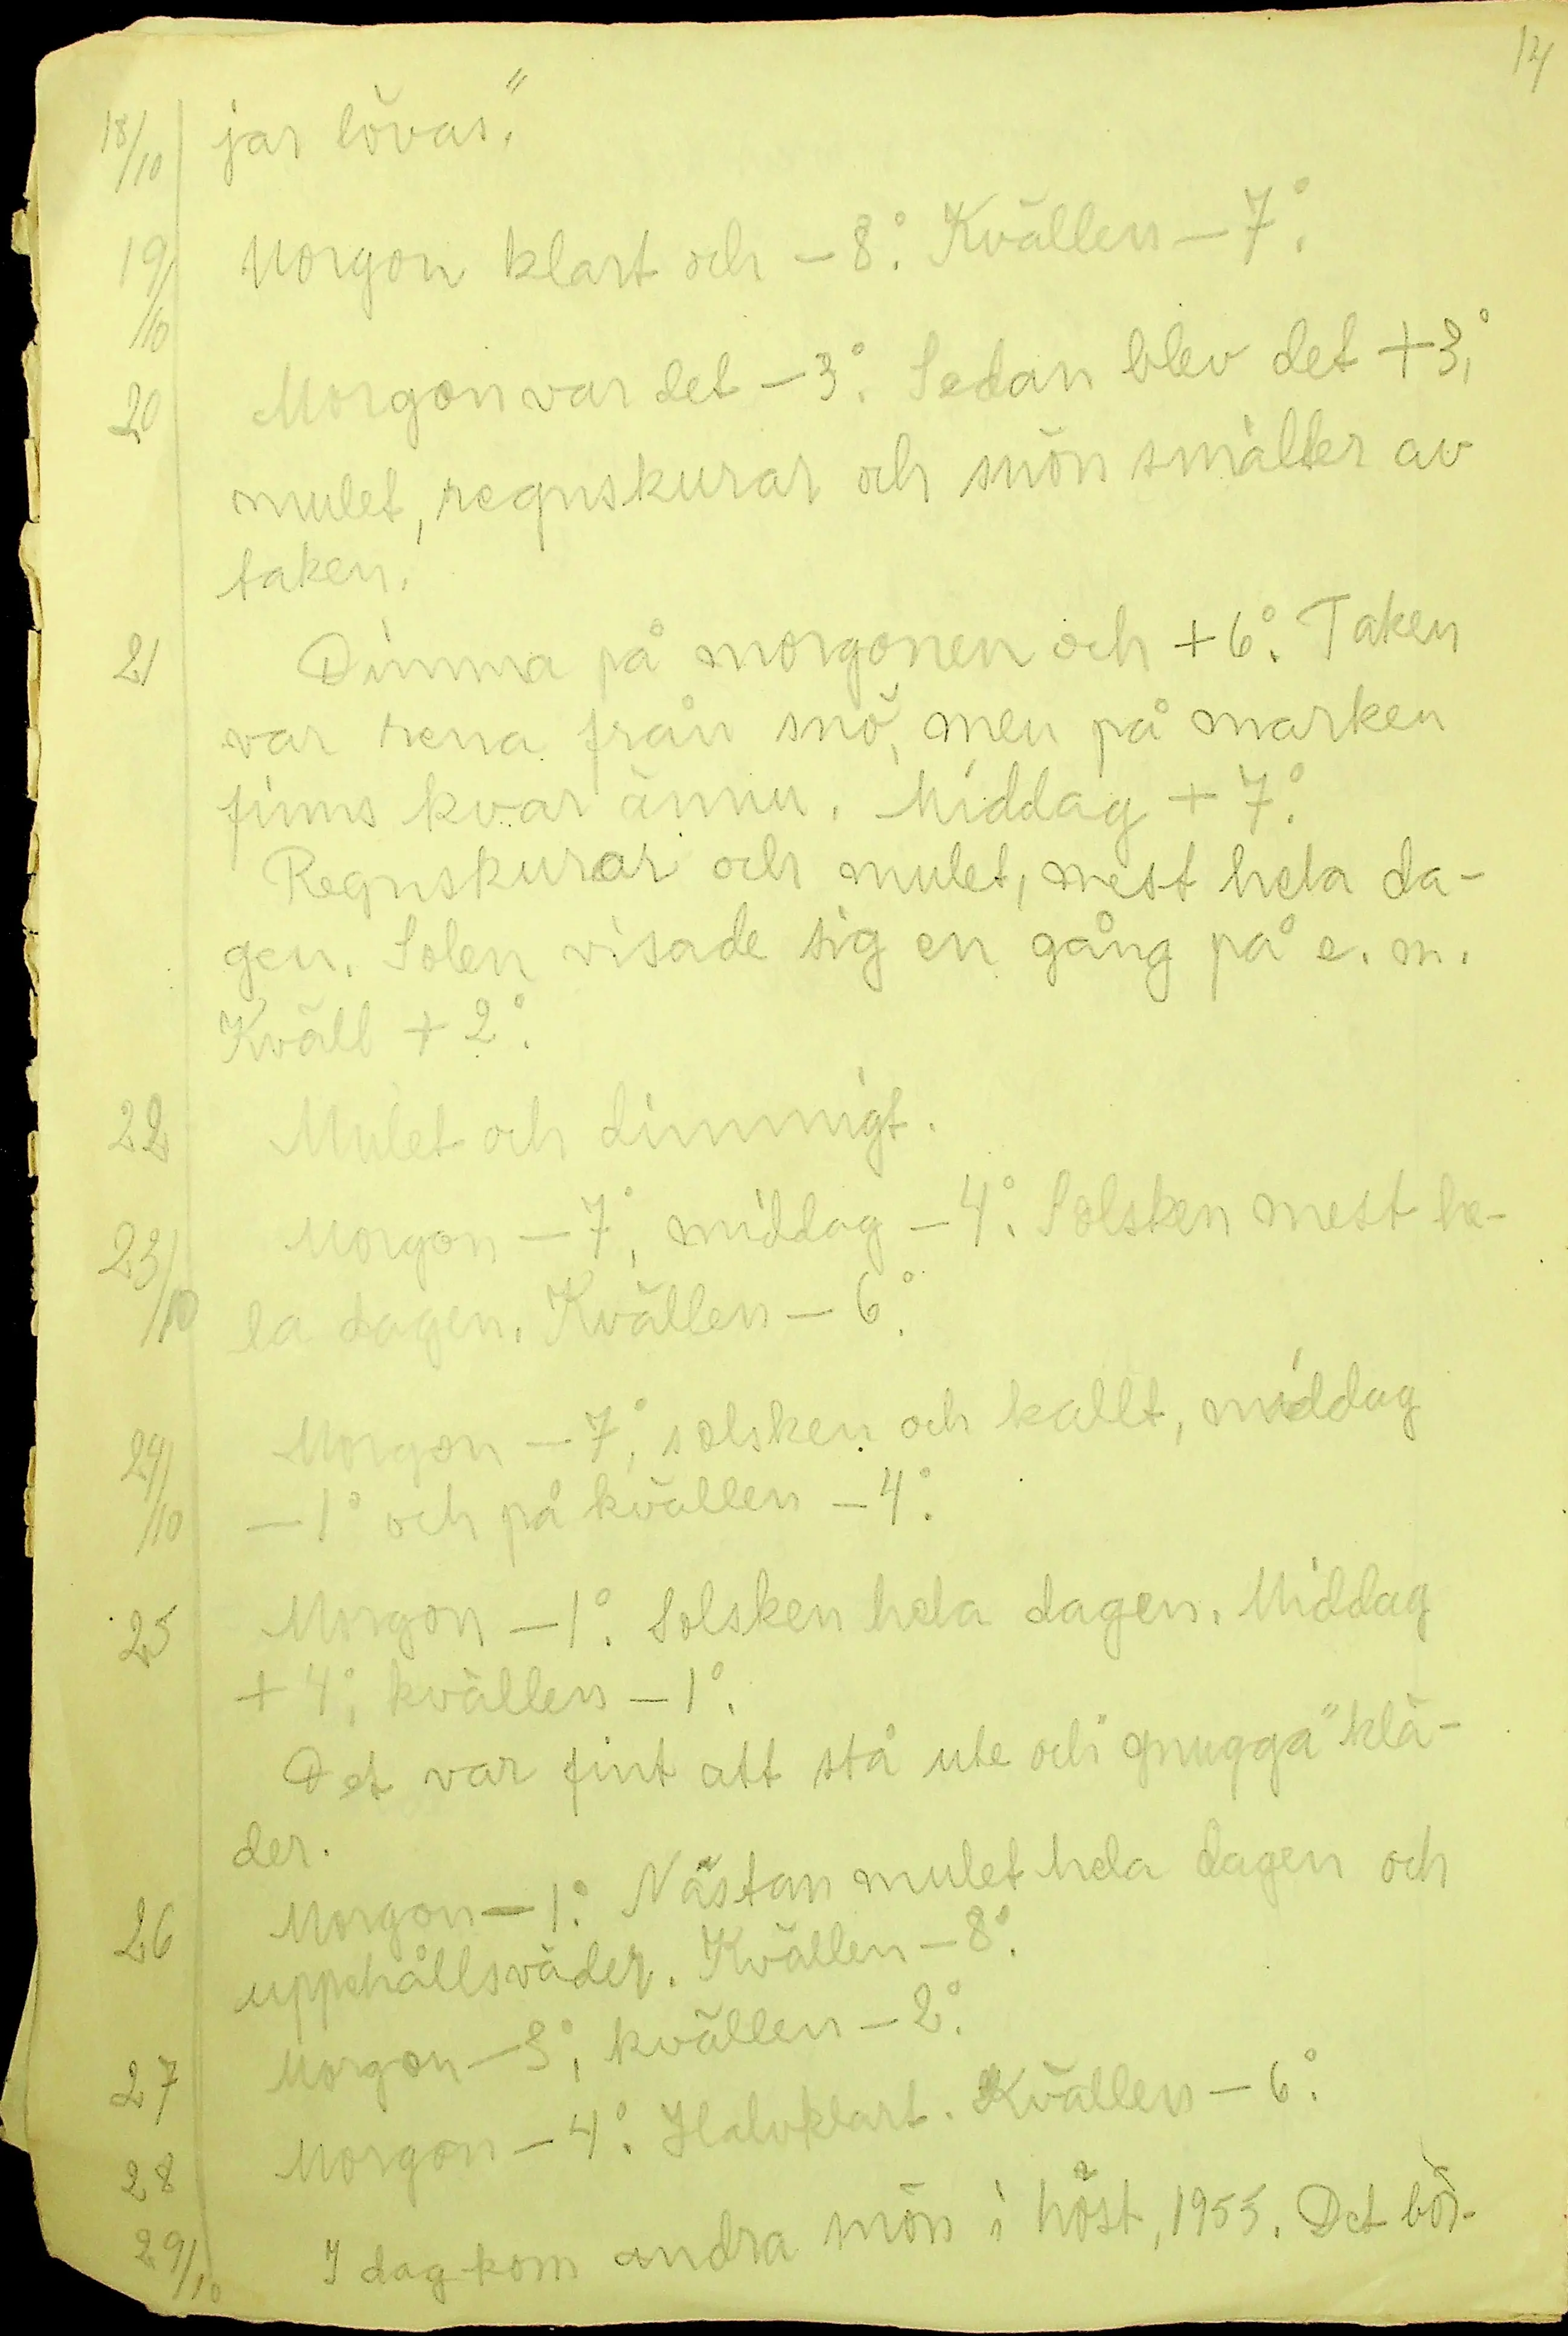 14
18/10 jar lövas."
19/10 Morgon klart och – 8°. Kvällen – 7°.
20 Morgon var det – 3°. Sedan blev det + 3°,
mulet, regnskurar och snön smälter av
taken.
21 Dimma på morgonen och + 6°. Taken
var rena från snö, men på marken
finns kvar ännu. Middag + 7°.
Regnskurar och mulet, mest hela da-
gen. Solen visade sig en gång på e. m.
Kväll + 2°.
22 Mulet och dimmigt.
23/10 Morgon – 7°, middag – 4°. Solsken mest he-
la dagen. Kvällen – 6°.
24/10 Morgon – 7°, solsken och kallt, middag
– 1° och på kvällen – 4°.
25 Morgon – 1°. Solsken hela dagen. Middag
+ 4°, kvällen – 1°.
Det var fint att stå ute och "gnugga" klä-
der.
26 Morgon – 1°. Nästan mulet hela dagen och
uppehållsväder. Kvällen – 8°.
27 Morgon – 3°, kvällen – 2°.
28 Morgon – 4°. Halvklart. Kvällen – 6°.
29/10 I dag kom andra snön i höst, 1955. Det bör-